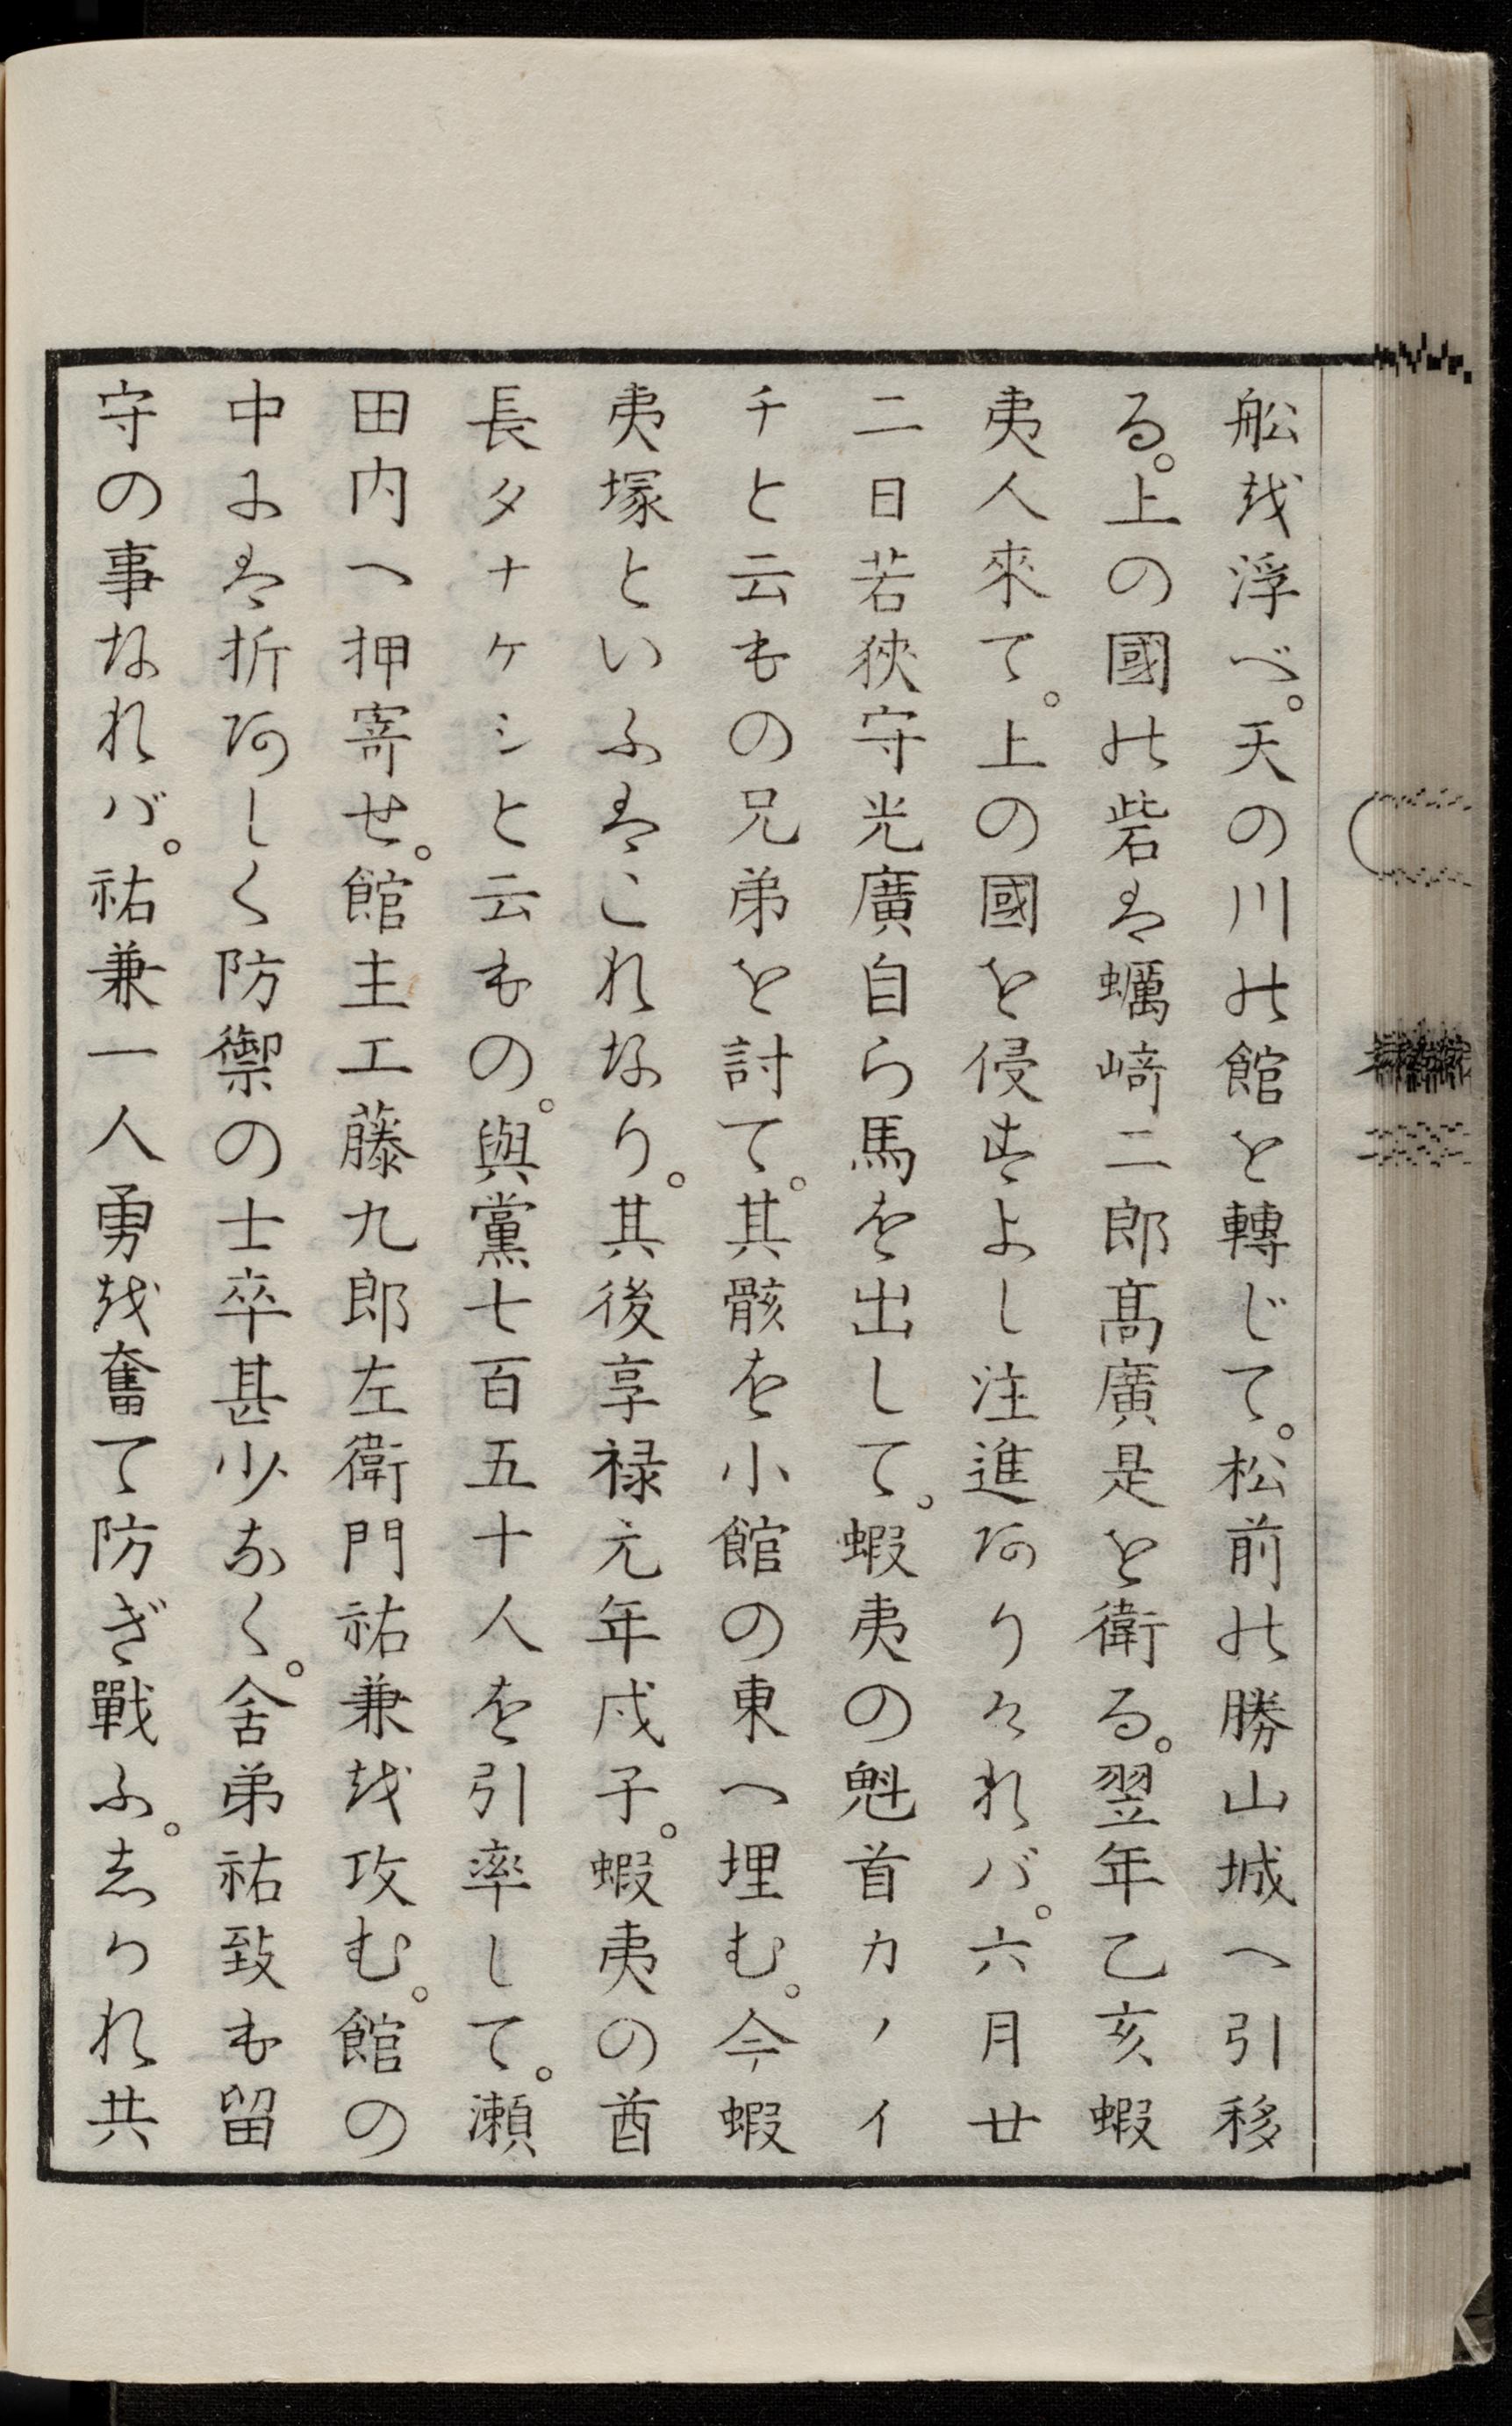 舩越浮べ。天の川の館を轉じて。松前の勝山城へ引移
る。上の國の砦は蠣﨑二郎髙廣是を衛る。翌年乙亥蝦
夷人來て。上の國を侵すよし注進ありけれバ。六月廿
二日若狹守光廣自ら馬を出して。蝦夷の魁首カノイ
チと云もの兄弟を討て。其骸を小館の東へ埋む。今蝦
夷塚といふはこれなり。其後享禄元年戍子。蝦夷の酋
長タナケシと云もの。與黨七百五十人を引率して。瀬
田内へ押寄せ。館主工藤九郎左衛門祐兼を攻む。館の
中には折あしく防禦の士卒甚少なく。舍弟祐致も留
守の事なれバ。祐兼一人勇を奮て防ぎ戰ふ。しかれ共